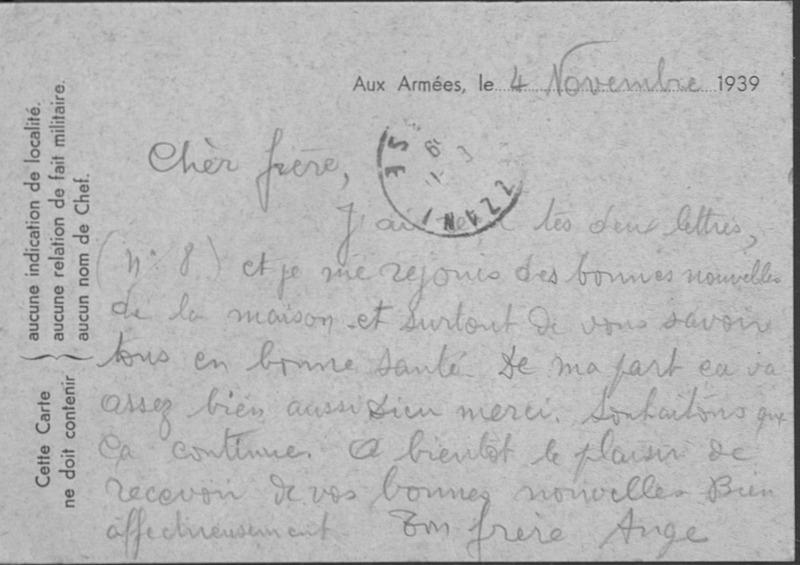 Aux Armées, le 4 Novembre 1939
Chèr frère,
J'ai reçu tes deux lettres,
(N° 8) et je me rejouis des bonnes nouvelles
de la maison et surtout de vous savoir
tous en bonne santé. De ma part ca va
assez bien aussi Dieu merci. Souhaitons que
Ca continue. A bientôt le plaisir de
recevoir de vos bonnes nouvelles Bien
affectueusement Ton frère Ange
Cette Carte
ne doit contenir
aucune indication de localité.
aucune relation de fait militaire.
aucun nom de Chef.